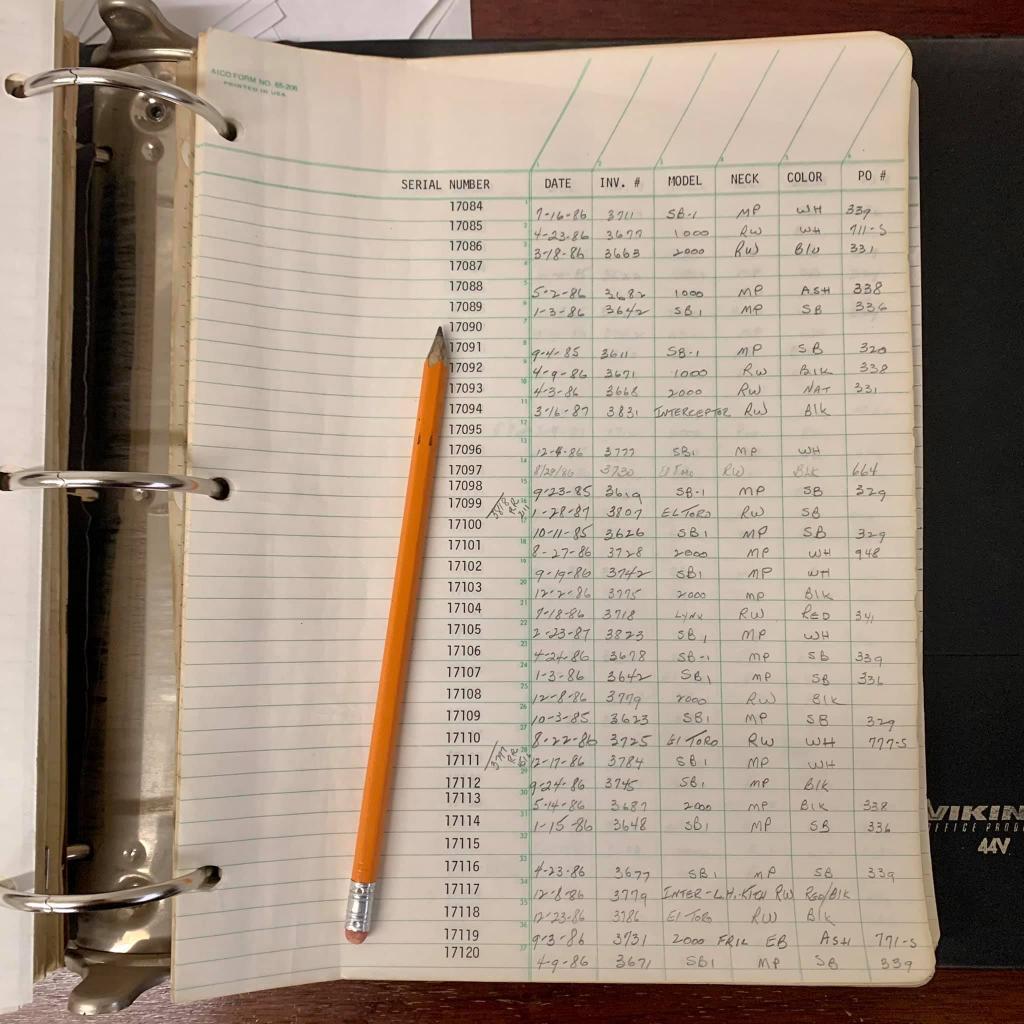 AICO FORM NO. 65-206
PRINTED IN USA
SERIAL NUMBER DATE INV. # MODEL NECK COLOR PO #
17084 7-16-86 3711 SB-1 MP WH 339
17085 4-23-86 3677 1000 RW WH 711-S
17086 3-18-86 3663 2000 RW Blu 331
17087
17088 5-2-86 3682 1000 MP ASH 338
17089 1-3-86 3642 SB1 MP SB 336
17090
17091 9-4-85 3611 SB-1 MP SB 320
17092 4-9-86 3671 1000 RW Blk 338
17093 4-3-86 3668 2000 RW NAT 331
17094 3-16-87 3831 INTERCEPTOR RW Blk
17095
17096 12-8-86 3777 SB1 MP WH
17097 8/29/86 3730 El Toro RW Blk 664
17098 9-23-85 3619 SB-1 MP SB 329
17099 1-28-87 3807 EL TORO RW SB
17100 10-11-85 3626 SB1 MP SB 329
17101 8-27-86 3728 2000 MP WH 948
17102 9-19-86 3742 SB1 MP WH
17103 12-2-86 3775 2000 MP Blk
17104 7-18-86 3718 LYNX RW RED 341
17105 2-23-87 3823 SB1 MP WH
17106 4-24-86 3678 SB-1 MP SB 339
17107 1-3-86 3642 SB1 MP SB 336
17108 12-8-86 3779 2000 RW Blk
17109 10-3-85 3623 SB1 MP SB 329
17110 8-22-86 3725 El TORO RW WH 777-S
17111 12-17-86 3784 SB1 MP WH
17112 9-24-86 3745 SB1 MP Blk
17113 5-14-86 3687 2000 MP Blk 338
17114 1-15-86 3648 SB1 MP SB 336
17115
17116 4-23-86 3677 SB1 MP SB 339
17117 12-8-86 3779 INTER-L.H. RW Red/Blk
17118 12-23-86 3786 El TORO RW Blk
17119 9-3-86 3731 2000 EB ASH 771-S
17120 4-9-86 3671 SB1 MP SB 339
VIKIN
OFFICE PRODU
44V